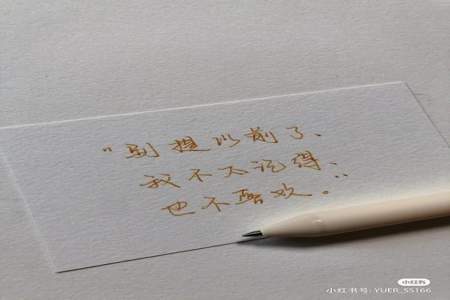 “别提以前了、
我不不记得、
也不喜欢。
小红书
小红书号: YUER_SS166